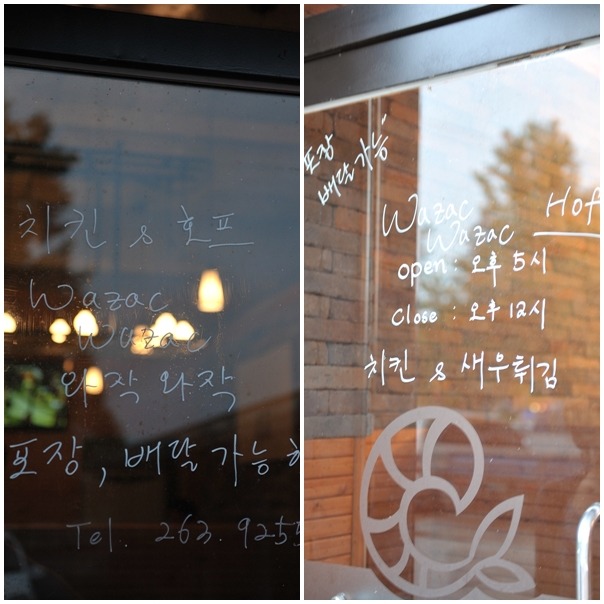 치킨 & 호프
Wazac
Wazac
와작 와작
포장, 배달가능
Tel. 263. 9255
포장
배달가능
Wazac
Wazac
Hof
open : 오후 5시
close : 오후 12시
치킨 & 새우튀김